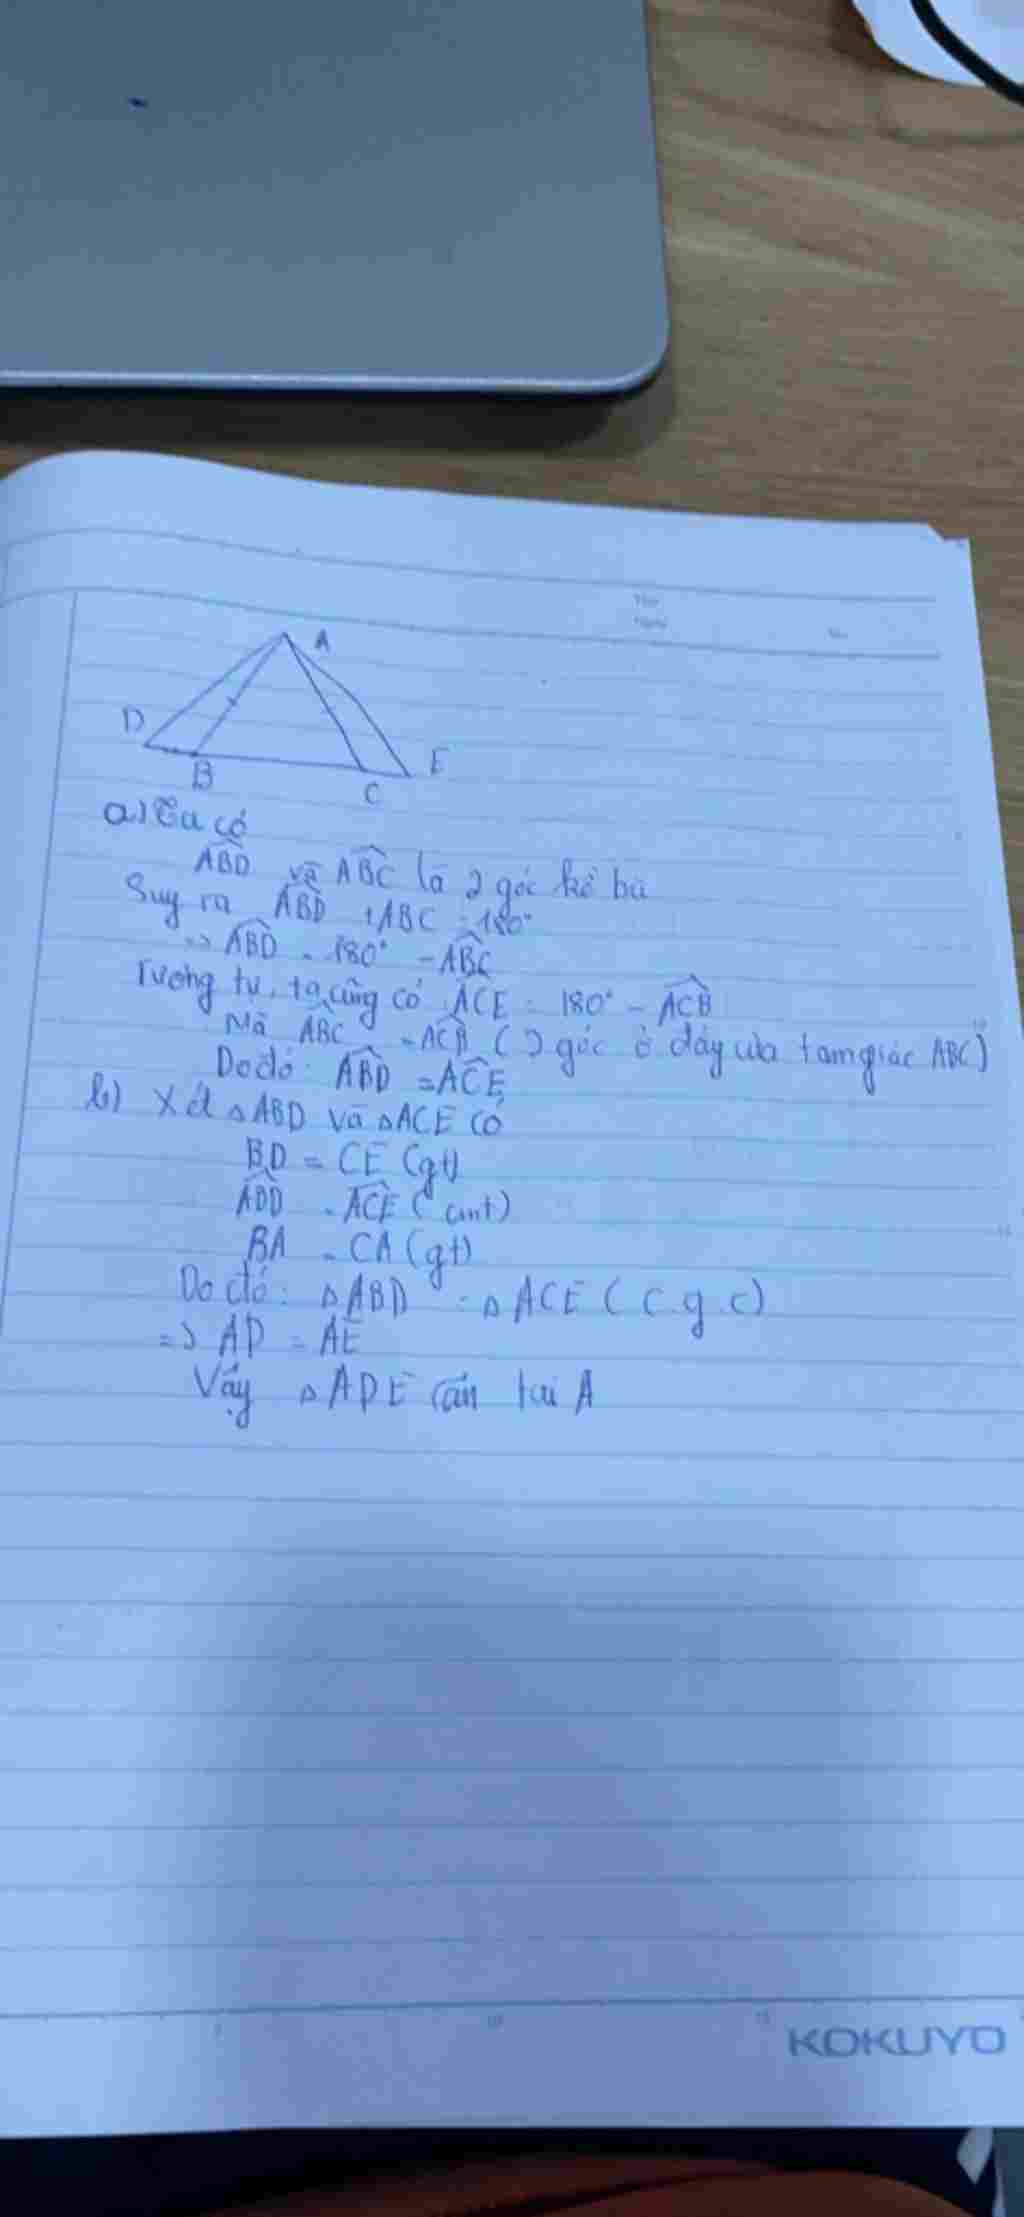 A
D
B
C
E
a) Ta có
ABD và ABC là 2 góc kề bù
Suy ra ABD + ABC = 180°
=> ABD = 180° - ABC
Tương tự, ta cũng có ACE = 180° - ACB
Mà ABC = ACB (2 góc ở đáy của tam giác ABC)
Do đó: ABD = ACE
b) Xét △ABD và △ACE có
BD = CE (gt)
ABD = ACE (cmt)
BA = CA (gt)
Do đó: △ABD = △ACE (c g c)
=> AD = AE
Vậy △ADE cân tại A
KOKUYO